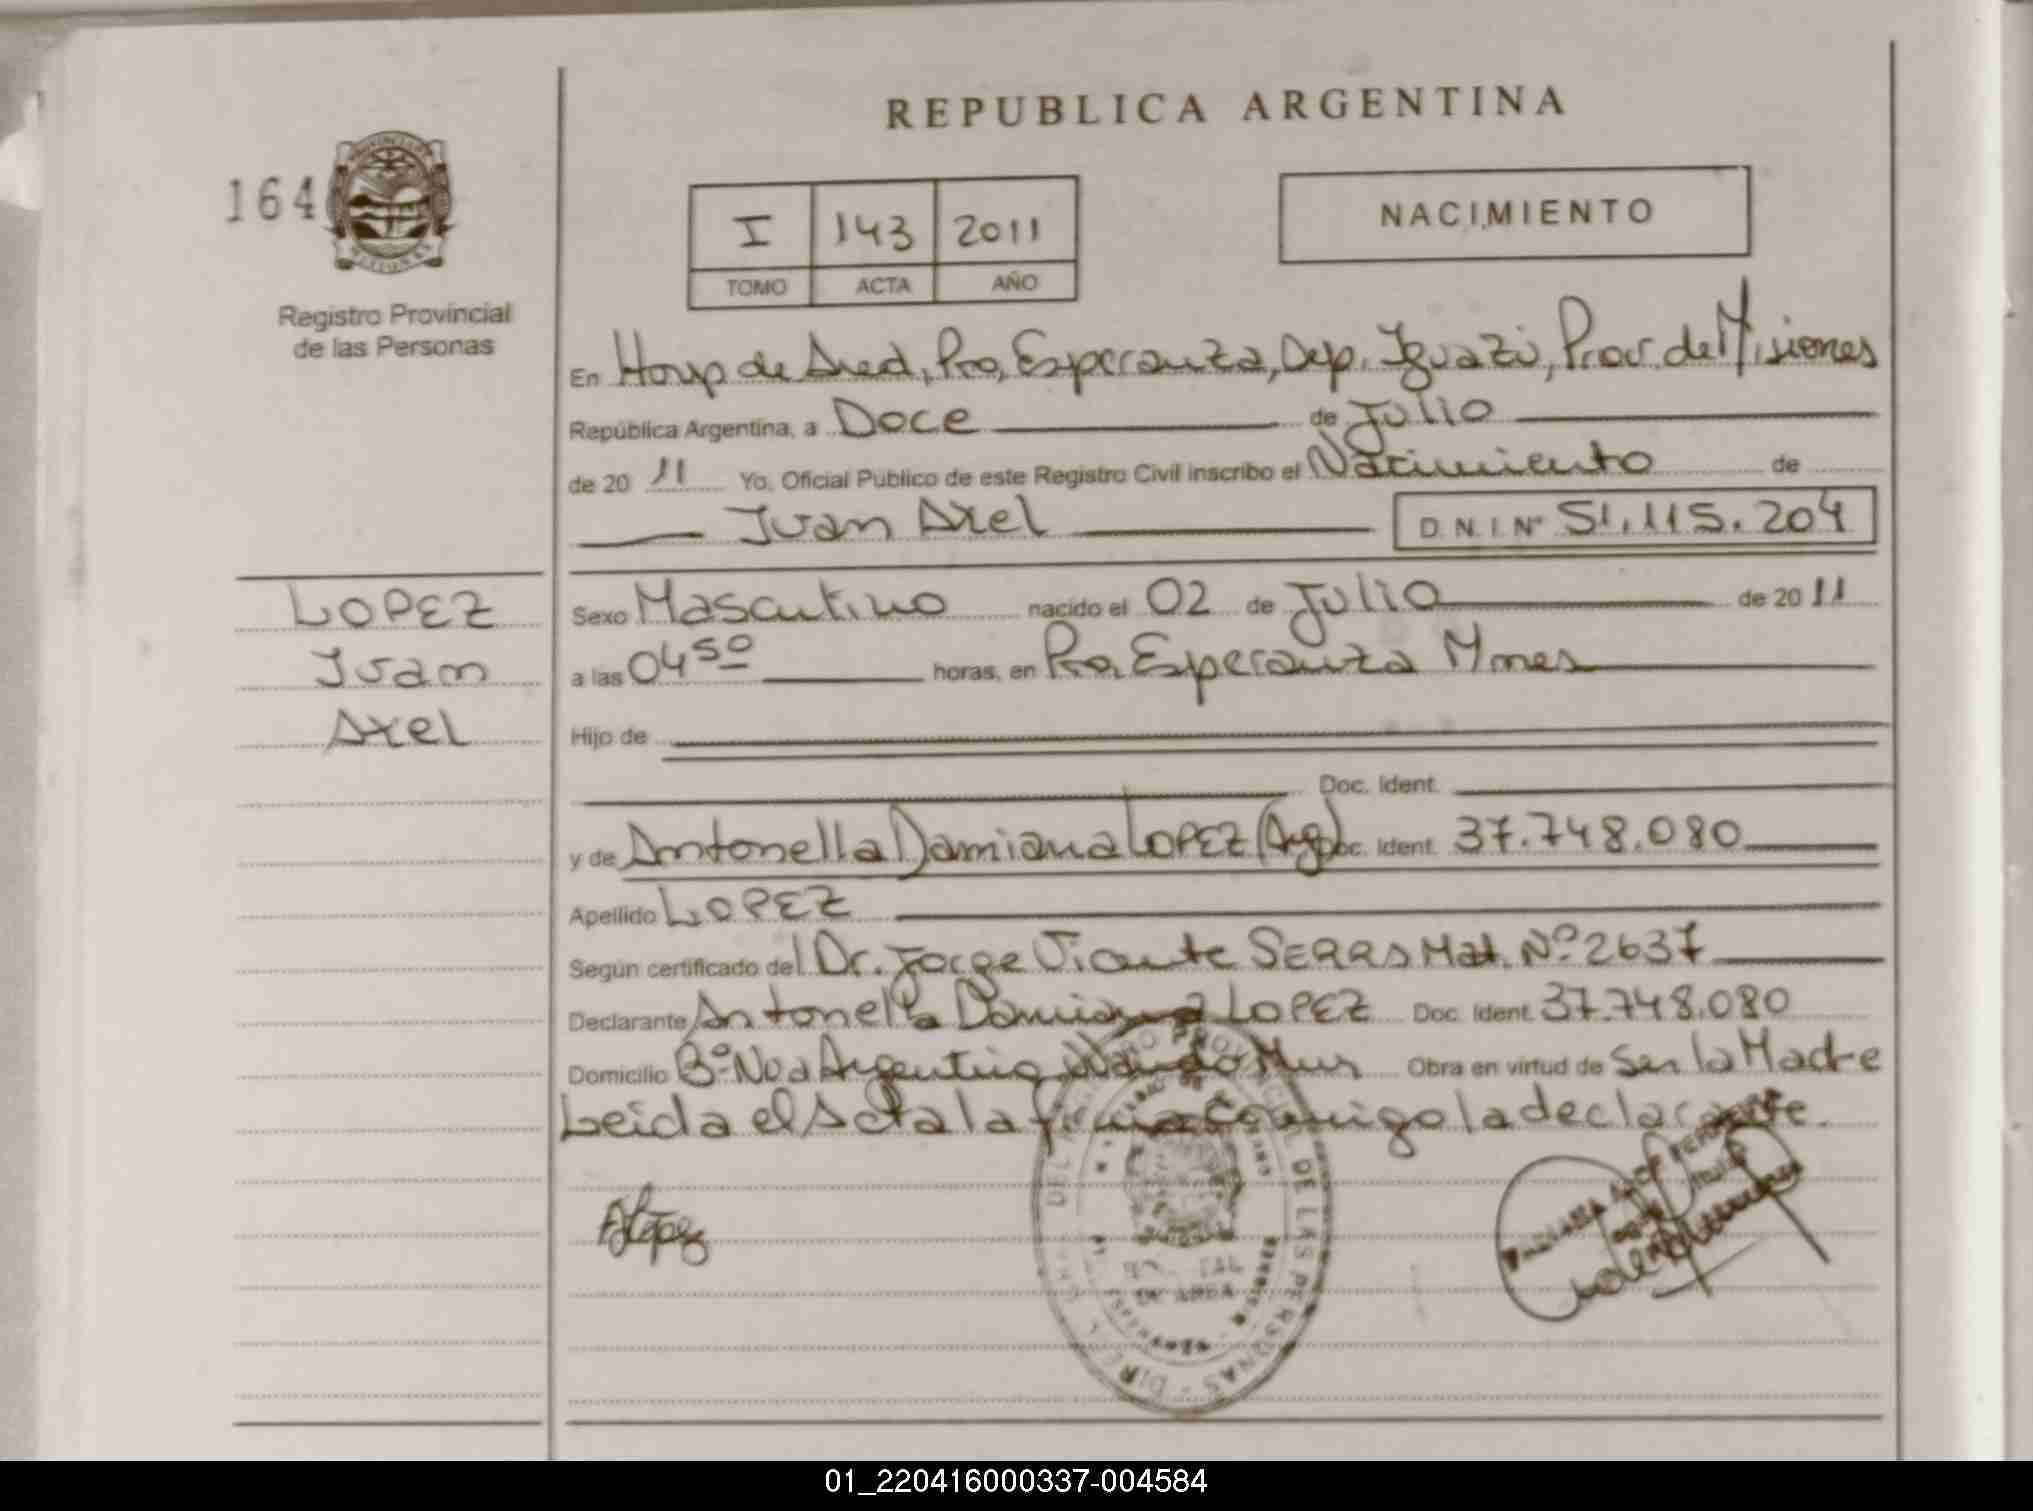 REPUBLICA ARGENTINA
164
Registro Provincial
de las Personas
I 143 2011
TOMO ACTA AÑO
NACIMIENTO
En Hosp de Area, Pto. Esperanza, Dep. Iguazú, Prov. de Misiones
República Argentina, a Doce de Julio
de 20 11 Yo, Oficial Público de este Registro Civil inscribo el Nacimiento de
Juan Axel D.N.I. Nº 51.115.204
LOPEZ
Juan
Axel
Sexo Masculino nacido el 02 de Julio de 20 11
a las 04 50 horas, en Pto. Esperanza Mnes
Hijo de
Doc. Ident.
y de Antonella Damiana LOPEZ (Arg) Doc. Ident. 37.748.080
Apellido LOPEZ
Según certificado del Dr. Jorge Vicente SERRA Mat. Nº 2637
Declarante Antonella Damiana LOPEZ Doc. Ident. 37.748.080
Domicilio Bº Nva Argentina Wanda Mnes Obra en virtud de Ser la Madre
Leida el Acta la firma conmigo la declarante.
ALopez
DE LAS PERSONAS
DE AREA
01_220416000337-004584